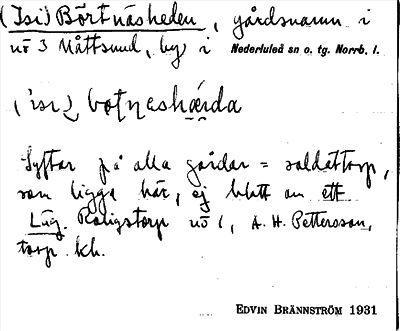 (Isi) Börtnäsheden, gårdsnamn i
nö 3 Måttsund, by i Nederluleå sn o. tg. Norrb. l.
Syftar på alla gårdar = soldattorp,
som ligga här, ej blott om ett
Lüg. torp nö 1, A. H. Pettersson,
torp. kh.
EDVIN BRÄNNSTRÖM 1931